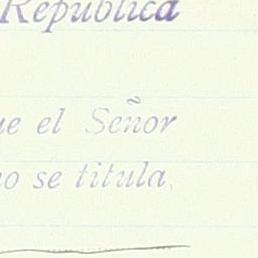 República
el Señor
se titula,